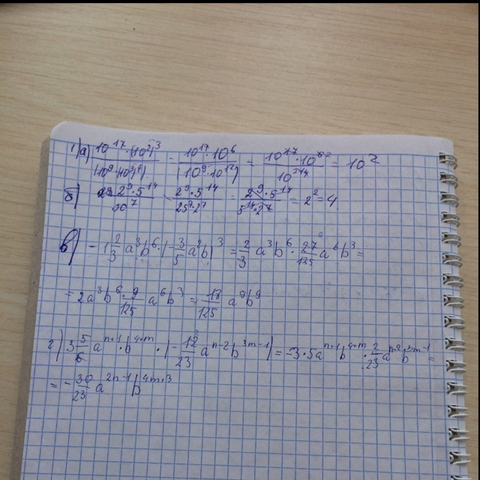 1) а) 10^17·(10^2)^3 / (10^9·(10^4)^3) = 10^17·10^6 / (10^9·10^12) = = 10^2
б) 2^9·5^14 / 50^7 = 2^9·5^14 / 25^7·2^7 = 2^9·5^14 / 5^14·2^7 = 2^2 = 4
в) - (2/3 a^3b^6·(-3/5 a^2b)^3 = 2/3 a^3b^6·27/125 a^6b^3 =
= 2a^3b^6·9/125 a^6b^3 = 18/125 a^9b^9
г) 3 5/6 a^n+1·b^4-m·(-12/23 a^n-2b^3m-1) = -3·5a^n+1b^4-m·2/23 a^n-2b^3m-1 =
= -30/23 a^2n-1b^4m+3